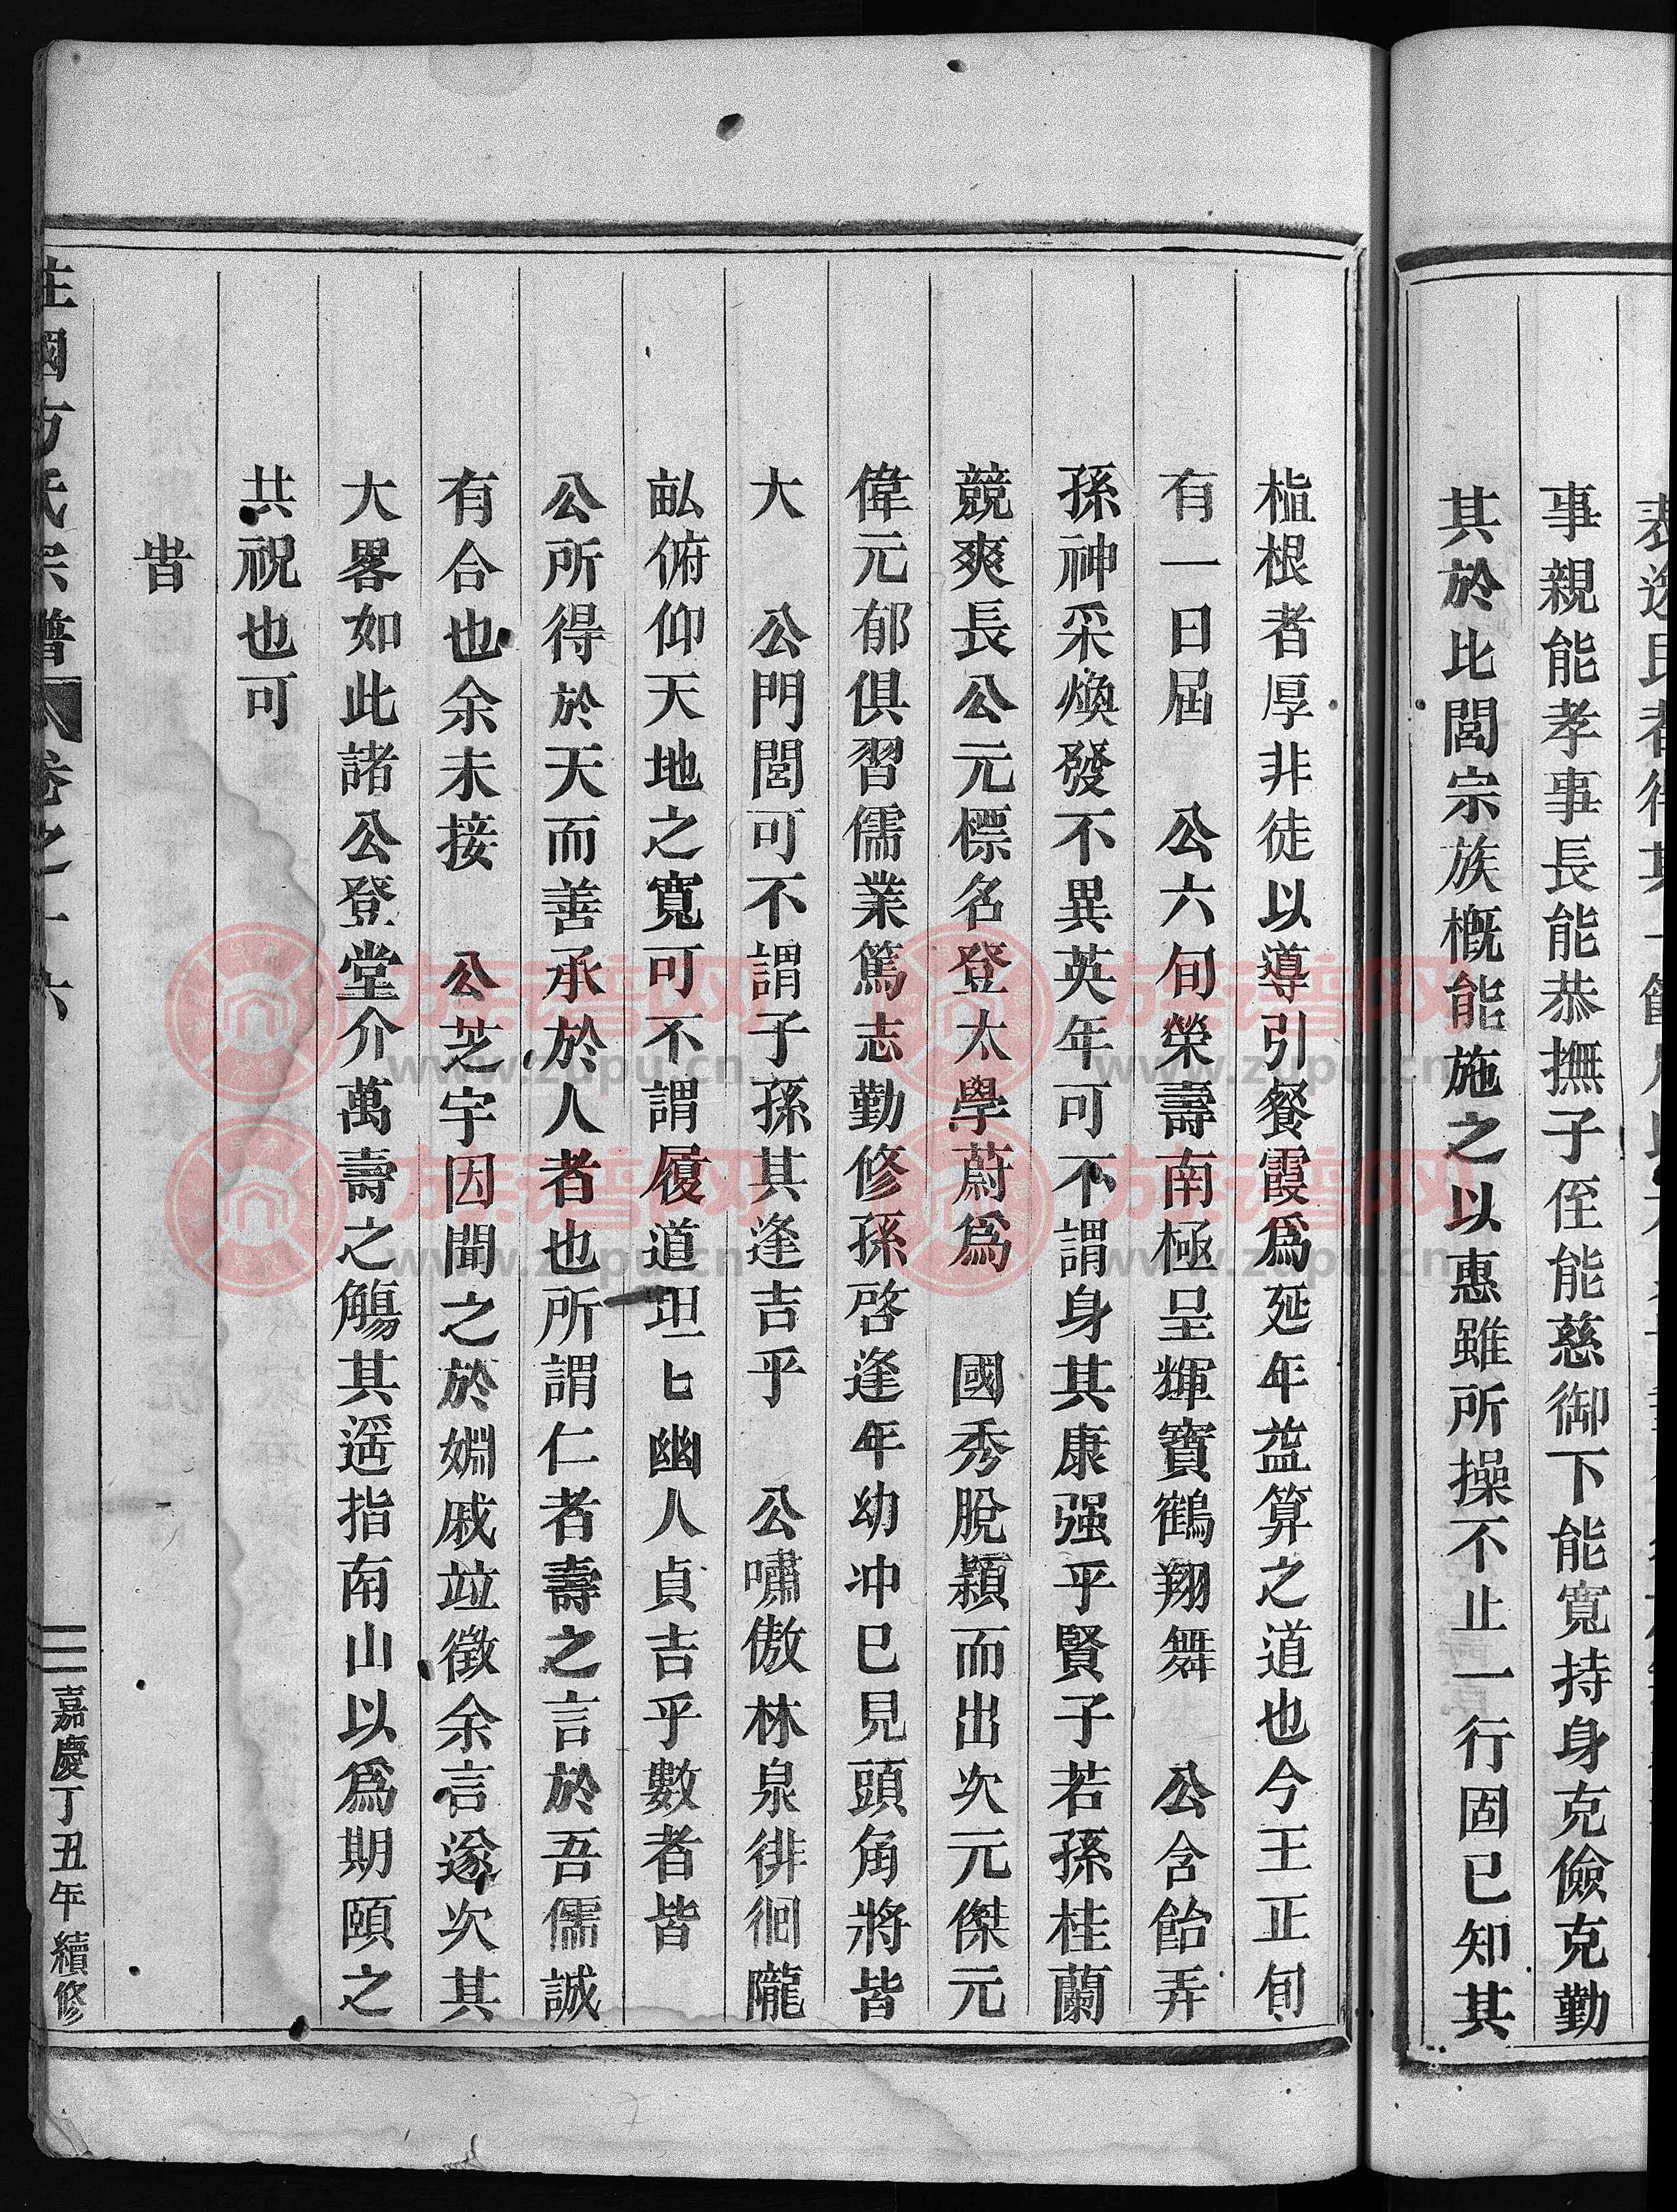 事親能孝事長能恭撫子侄能慈御下能寬持身克儉克勤
其於比閭宗族概能施之以惠雖所操不止一行固已知其
植根者厚非徒以導引餐霞爲延年益算之道也今王正旬
有一日屆　公六旬榮壽南極呈輝寶鶴翔舞　公含飴弄
孫神采煥發不異英年可不謂身其康强乎賢子若孫桂蘭
競爽長公元標名登太學蔚爲　國秀脫穎而出次元傑元
偉元郁俱習儒業篤志勤修孫啓逢年幼冲已見頭角將皆
大　公門閭可不謂子孫其逢吉乎　公嘯傲林泉徘徊隴
畝俯仰天地之寬可不謂履道坦匕幽人貞吉乎數者皆
公所得於天而善承於人者也所謂仁者壽之言於吾儒誠
有合也余未接　公芝宇因聞之於姻戚竝徵余言遂次其
大畧如此諸公登堂介萬壽之觴其遥指南山以爲期頤之
共祝也可
旹
國方氏宗譜　卷之十六　三　嘉慶丁丑年續修
族谱网
www.zupu.cn
族谱网
www.zupu.cn
族谱网
www.zupu.cn
族谱网
www.zupu.cn